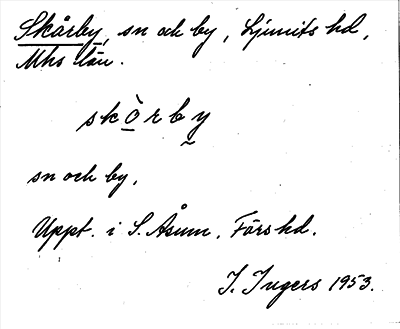 Skårby, sn och by, Ljunits hd,
Mhs län.
skò̠rby̰
sn och by.
Uppt. i S. Åsum, Färs hd.
I. Ingers 1953.